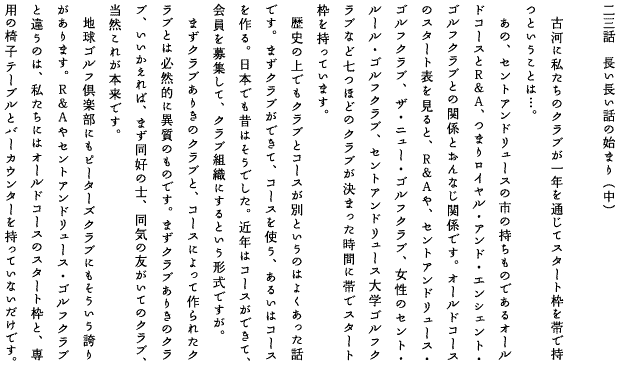 二三話　長い長い話の始まり（中）
　古河に私たちのクラブが一年を通じてスタート枠を帯で持
つということは…。
　あの、セントアンドリュースの市の持ちものであるオール
ドコースとR&A、つまりロイヤル・アンド・エンシェント・
ゴルフクラブとの関係とおんなじ関係です。オールドコース
のスタート表を見ると、R&Aや、セントアンドリュース・
ゴルフクラブ、ザ・ニュー・ゴルフクラブ、女性のセント・
ルール・ゴルフクラブ、セントアンドリュース大学ゴルフク
ラブなど七つほどのクラブが決まった時間に帯でスタート
枠を持っています。
　歴史の上でもクラブとコースが別というのはよくあった話
です。まずクラブができて、コースを使う、あるいはコース
を作る。日本でも昔はそうでした。近年はコースができて、
会員を募集して、クラブ組織にするという形式ですが。
　まずクラブありきのクラブと、コースによって作られたク
ラブとは必然的に異質のものです。まずクラブありきのクラ
ブ、いいかえれば、まず同好の士、同気の友がいてのクラブ、
当然これが本来です。
　地球ゴルフ倶楽部にもピーターズクラブにもそういう誇り
があります。R&Aやセントアンドリュース・ゴルフクラブ
と違うのは、私たちにはオールドコースのスタート枠と、専
用の椅子テーブルとバーカウンターを持っていないだけです。